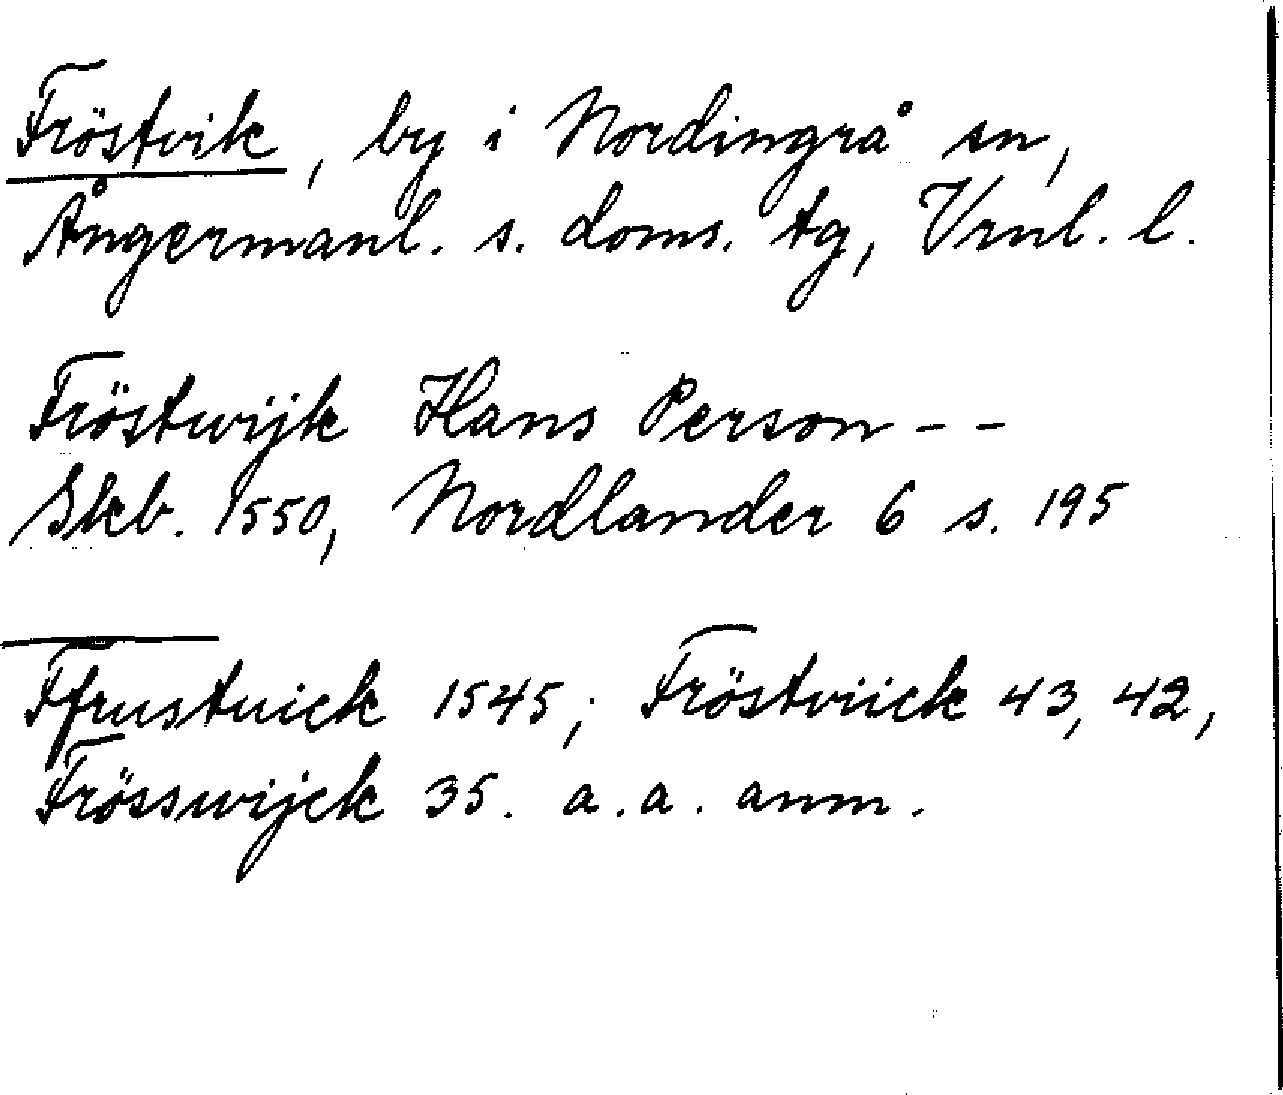 Fröstvik, by i Nordingrå sn,
Ångermanl. s. doms. tg, Vrnl. l.
Fröstwijk Hans Person - -
Skb. 1550, Nordlander 6 s. 195
Ffrustuick 1545; Fröstviick 43, 42,
Frösswijck 35. a.a. anm.